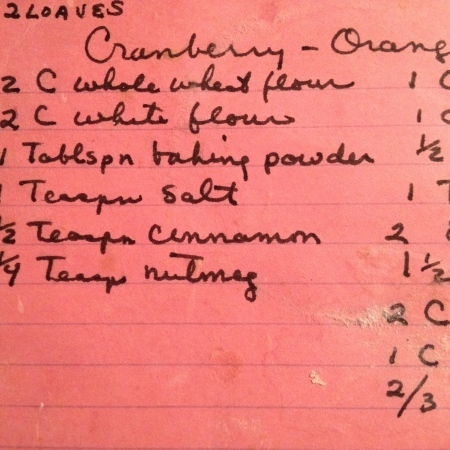 2 LOAVES
Cranberry - Orang
2 C whole wheat flour 1 C
2 C white flour 1 C
1 Tablspn baking powder 1/2
1 Teaspn salt 1 T
1/2 Teaspn cinnamon 2
1/4 Teasp nutmeg 1 1/2
2 C
1 C
2/3